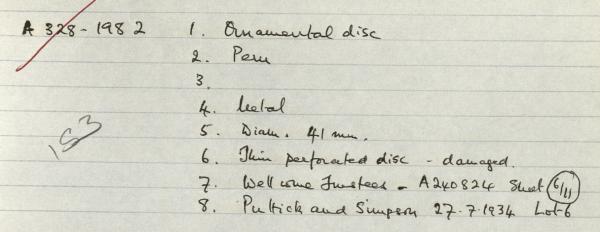 A 328-1982 1. Ornamental disc
2. Peru
3.
4. Metal
5. Diam. 41 mm.
6. Thin perforated disc - damaged.
153
7. Wellcome Trustees - A240824 Sheet 6/11
8. Puttick and Simpson 27.7.1934 Lot 6